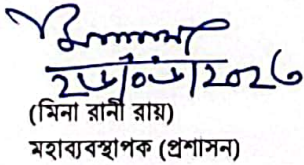 ২৬/০৬/২০২৩
(মিনা রানী রায়)
মহাব্যবস্থাপক (প্রশাসন)